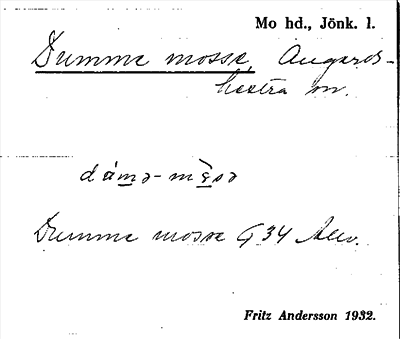 Mo hd., Jönk. l.
Dumme mosse, Angerds-
hestra sn.
dúmə-mo̊sə
Dumme mosse G 34
Fritz Andersson 1932.